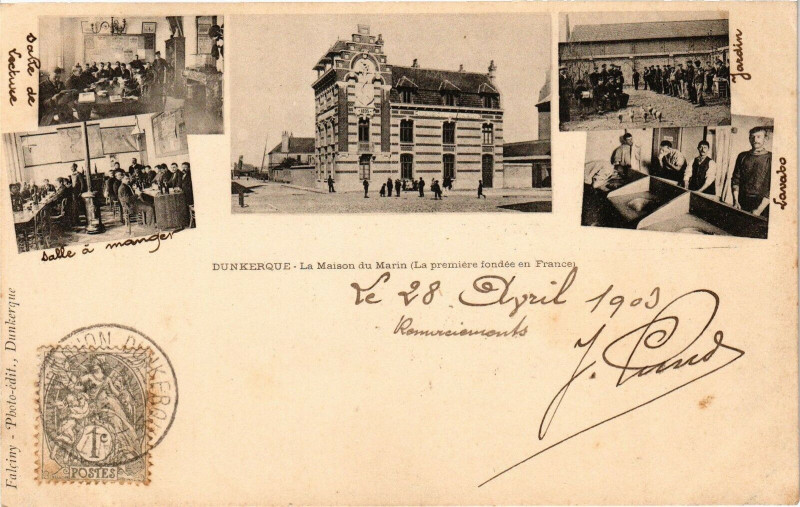 Salle de
Lecture
Salle à manger
Jardin
Lavabo
DUNKERQUE - La Maison du Marin (La première fondée en France)
Le 28 Avril 1903
Remerciements
J.
Falciny - Photo-édit., Dunkerque
DUNKERQUE
1c
POSTES